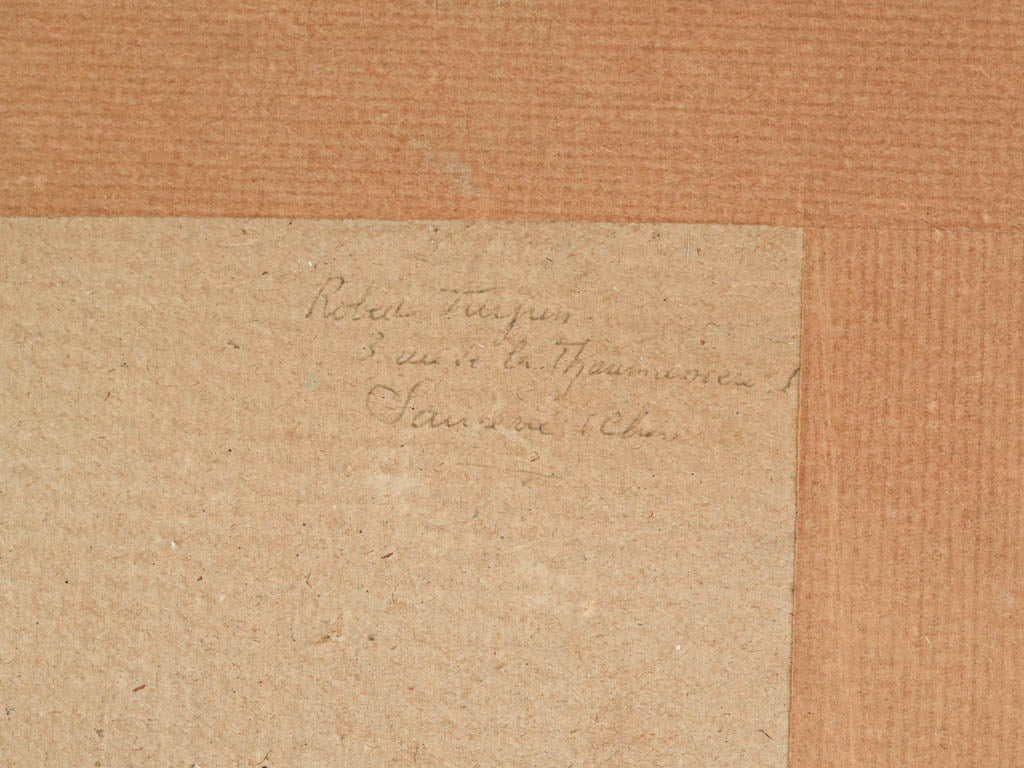 Robert Turpin
3 rue de la Thaumassière
Sancerre (Cher)